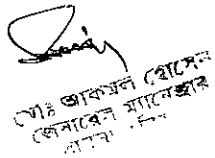 মোঃ আকমল হোসেন
জেনারেল ম্যানেজার